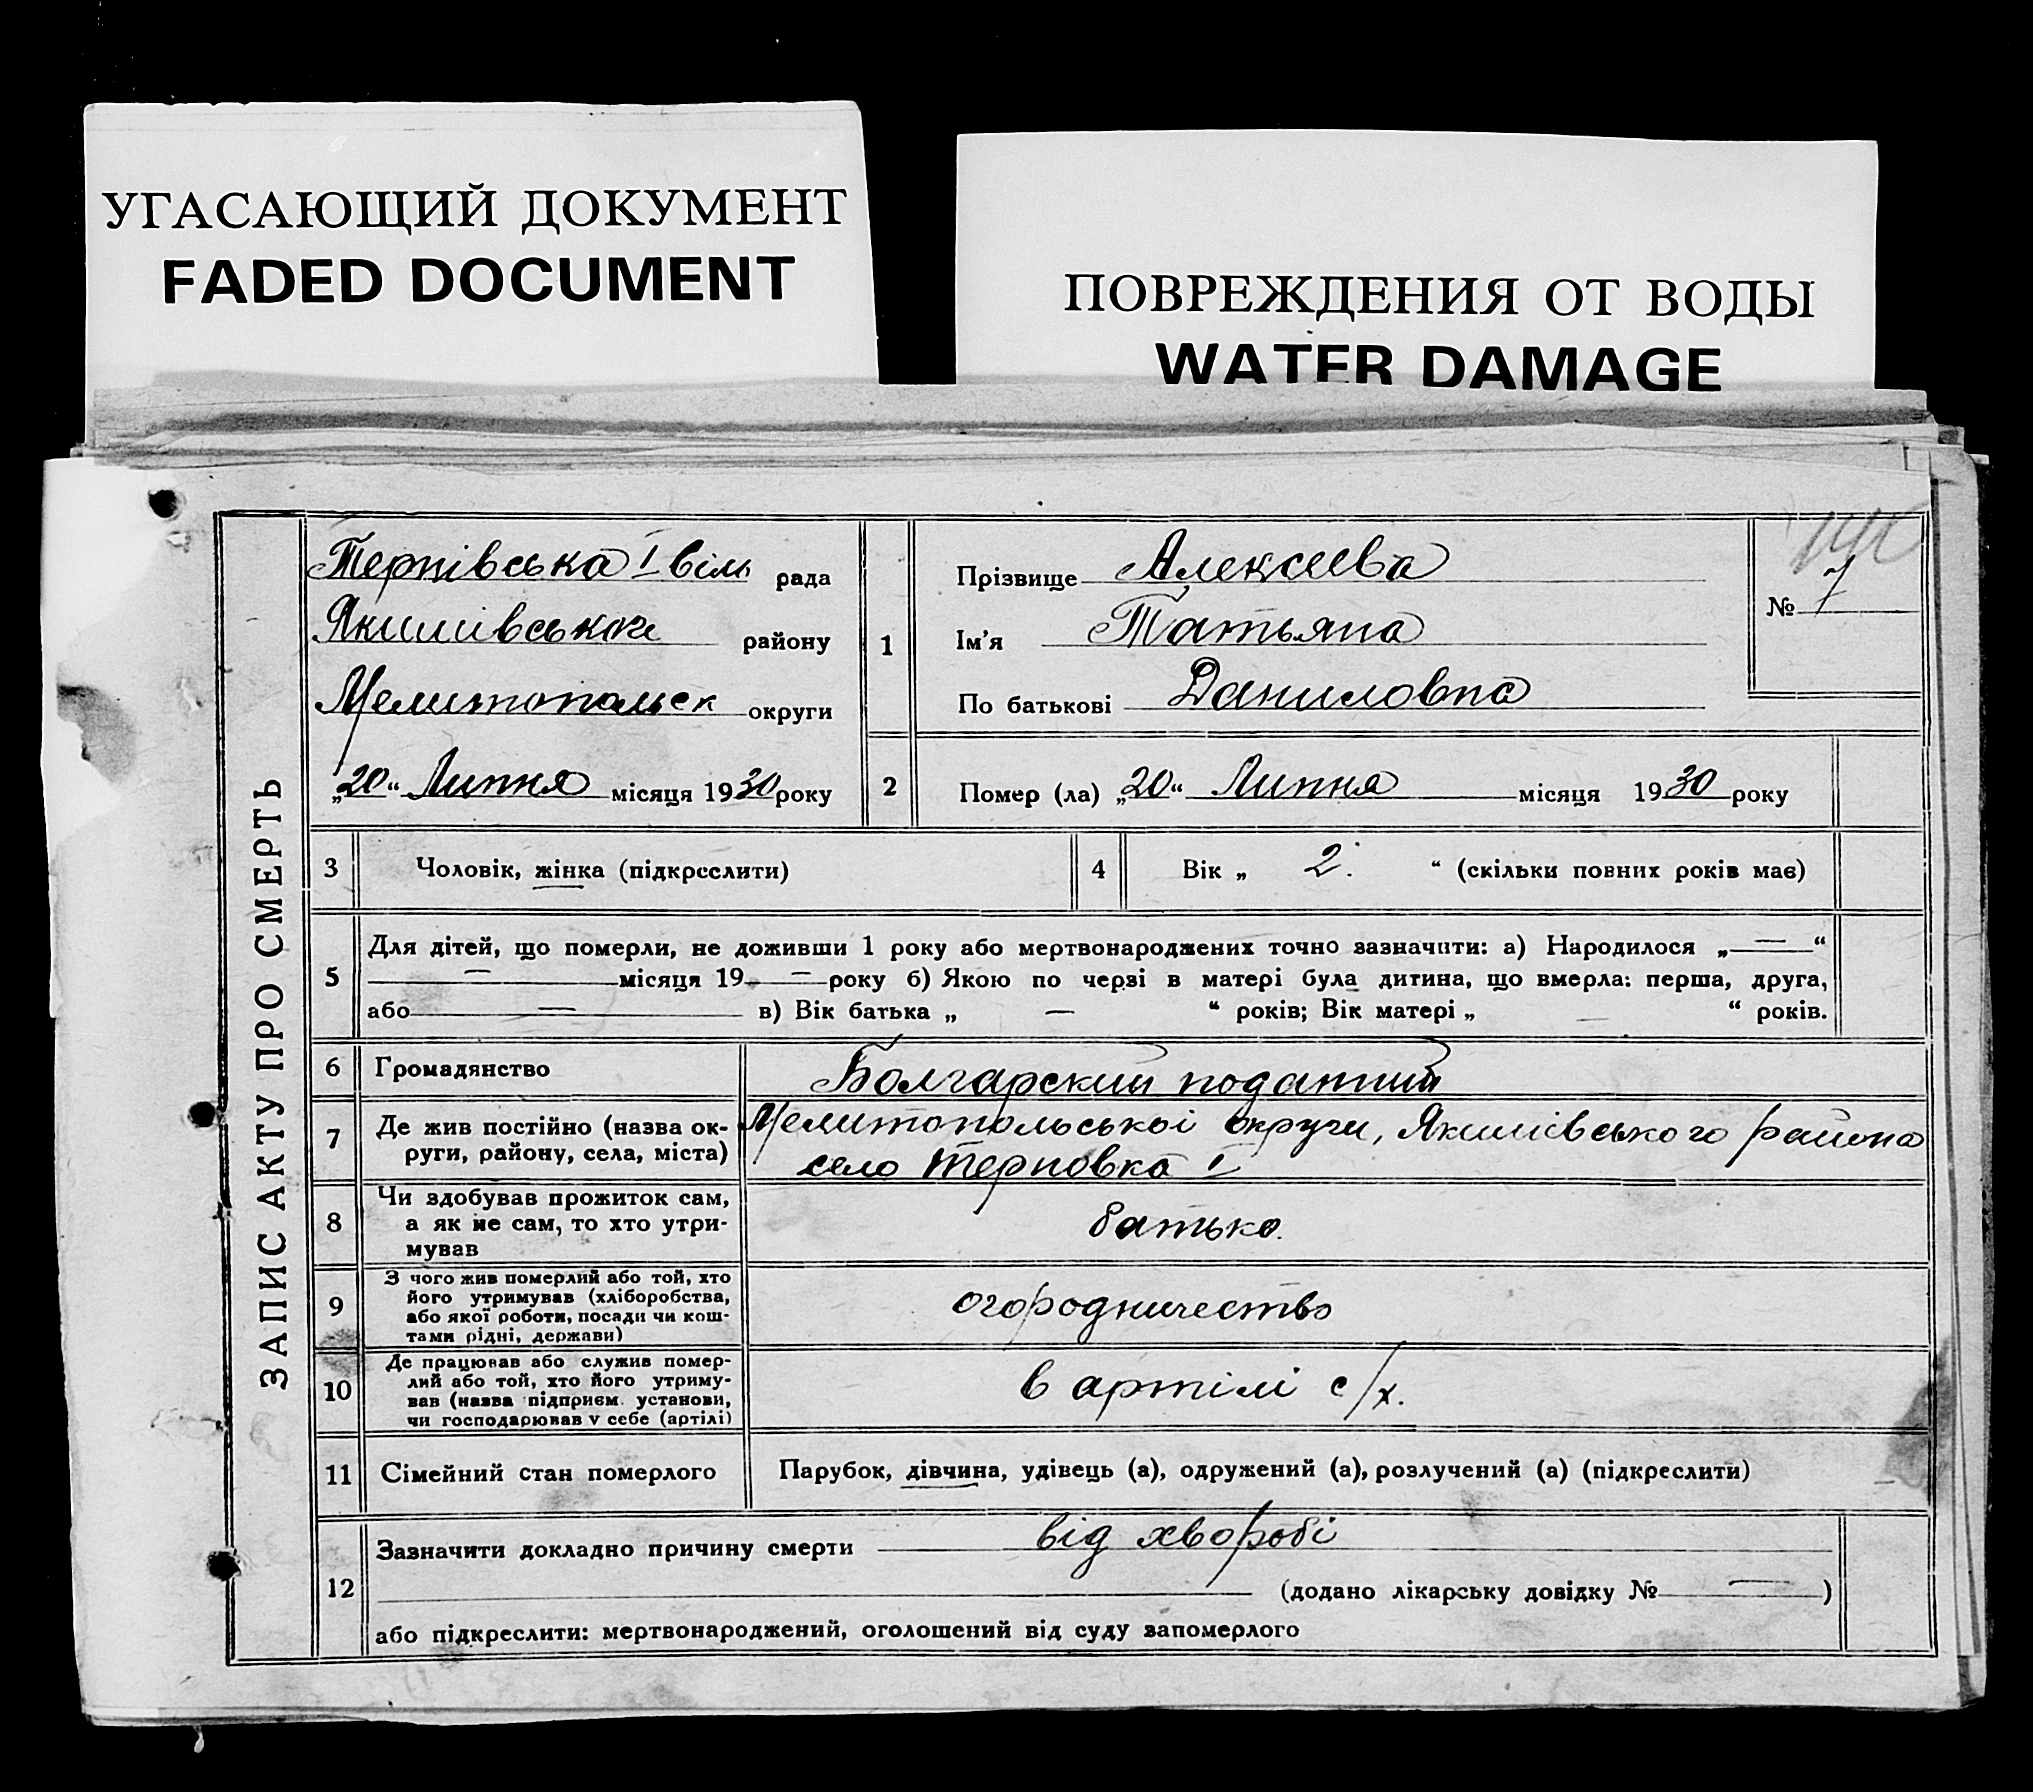 УГАСАЮЩИЙ ДОКУМЕНТ
FADED DOCUMENT
ПОВРЕЖДЕНИЯ ОТ ВОДЫ
WATER DAMAGE
ЗАПИС АКТУ ПРО СМЕРТЬ
Тернівська I віль рада
Якимівського району
Мелитопольськ округи
„20“ Липня місяця 1930 року
1
Прізвище Алексеева
Ім’я Татьяна
По батькові Даниловна
№ 7
2
Помер (ла) „20“ Липня місяця 1930 року
3 Чоловік, жінка (підкреслити)
4 Вік „ 2. “ (скільки повних років має)
5
Для дітей, що померли, не доживши 1 року або мертвонароджених точно зазначити: а) Народилося „ — “
— місяця 19 — року б) Якою по черзі в матері була дитина, що вмерла: перша, друга,
або — в) Вік батька „ — “ років; Вік матері „ — “ років.
6 Громадянство Болгарский податний
7 Де жив постійно (назва ок-
руги, району, села, міста)
Мелитопольськоі округи, Якимівського района
село Терновка I
8 Чи здобував прожиток сам,
а як не сам, то хто утри-
мував
батько.
9 З чого жив померлий або той, хто
його утримував (хліборобства,
або якої роботи, посади чи кош-
тами рідні, держави)
огородничество
10 Де працював або служив помер-
лий або той, хто його утриму-
вав (назва підприєм. установи,
чи господарював у себе (артілі)
в артілі с/х.
11 Сімейний стан померлого Парубок, дівчина, удівець (а), одружений (а), розлучений (а) (підкреслити)
12
Зазначити докладно причину смерти від хворобі
(додано лікарську довідку № — )
або підкреслити: мертвонароджений, оголошений від суду запомерлого